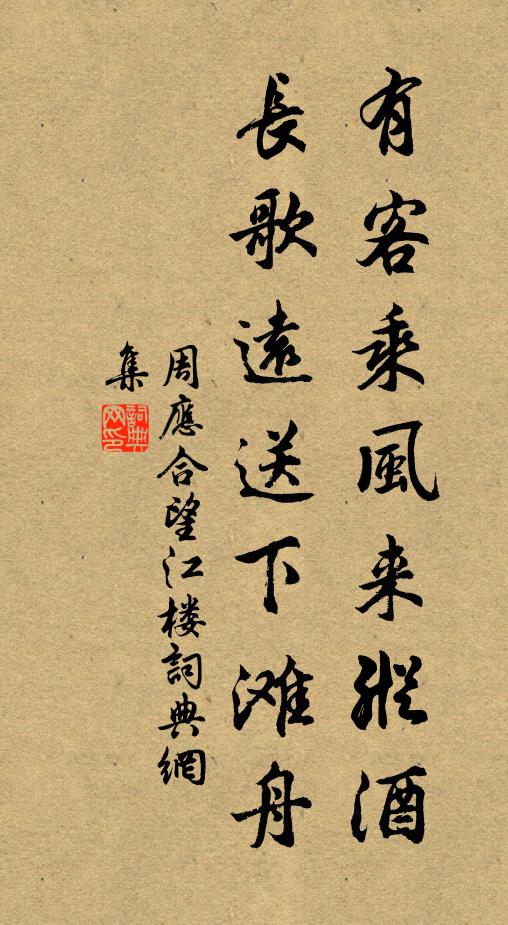 有客乘風来縱酒
長歌遠送下滩舟
周應合望江楼詞典網
集
詞典网印